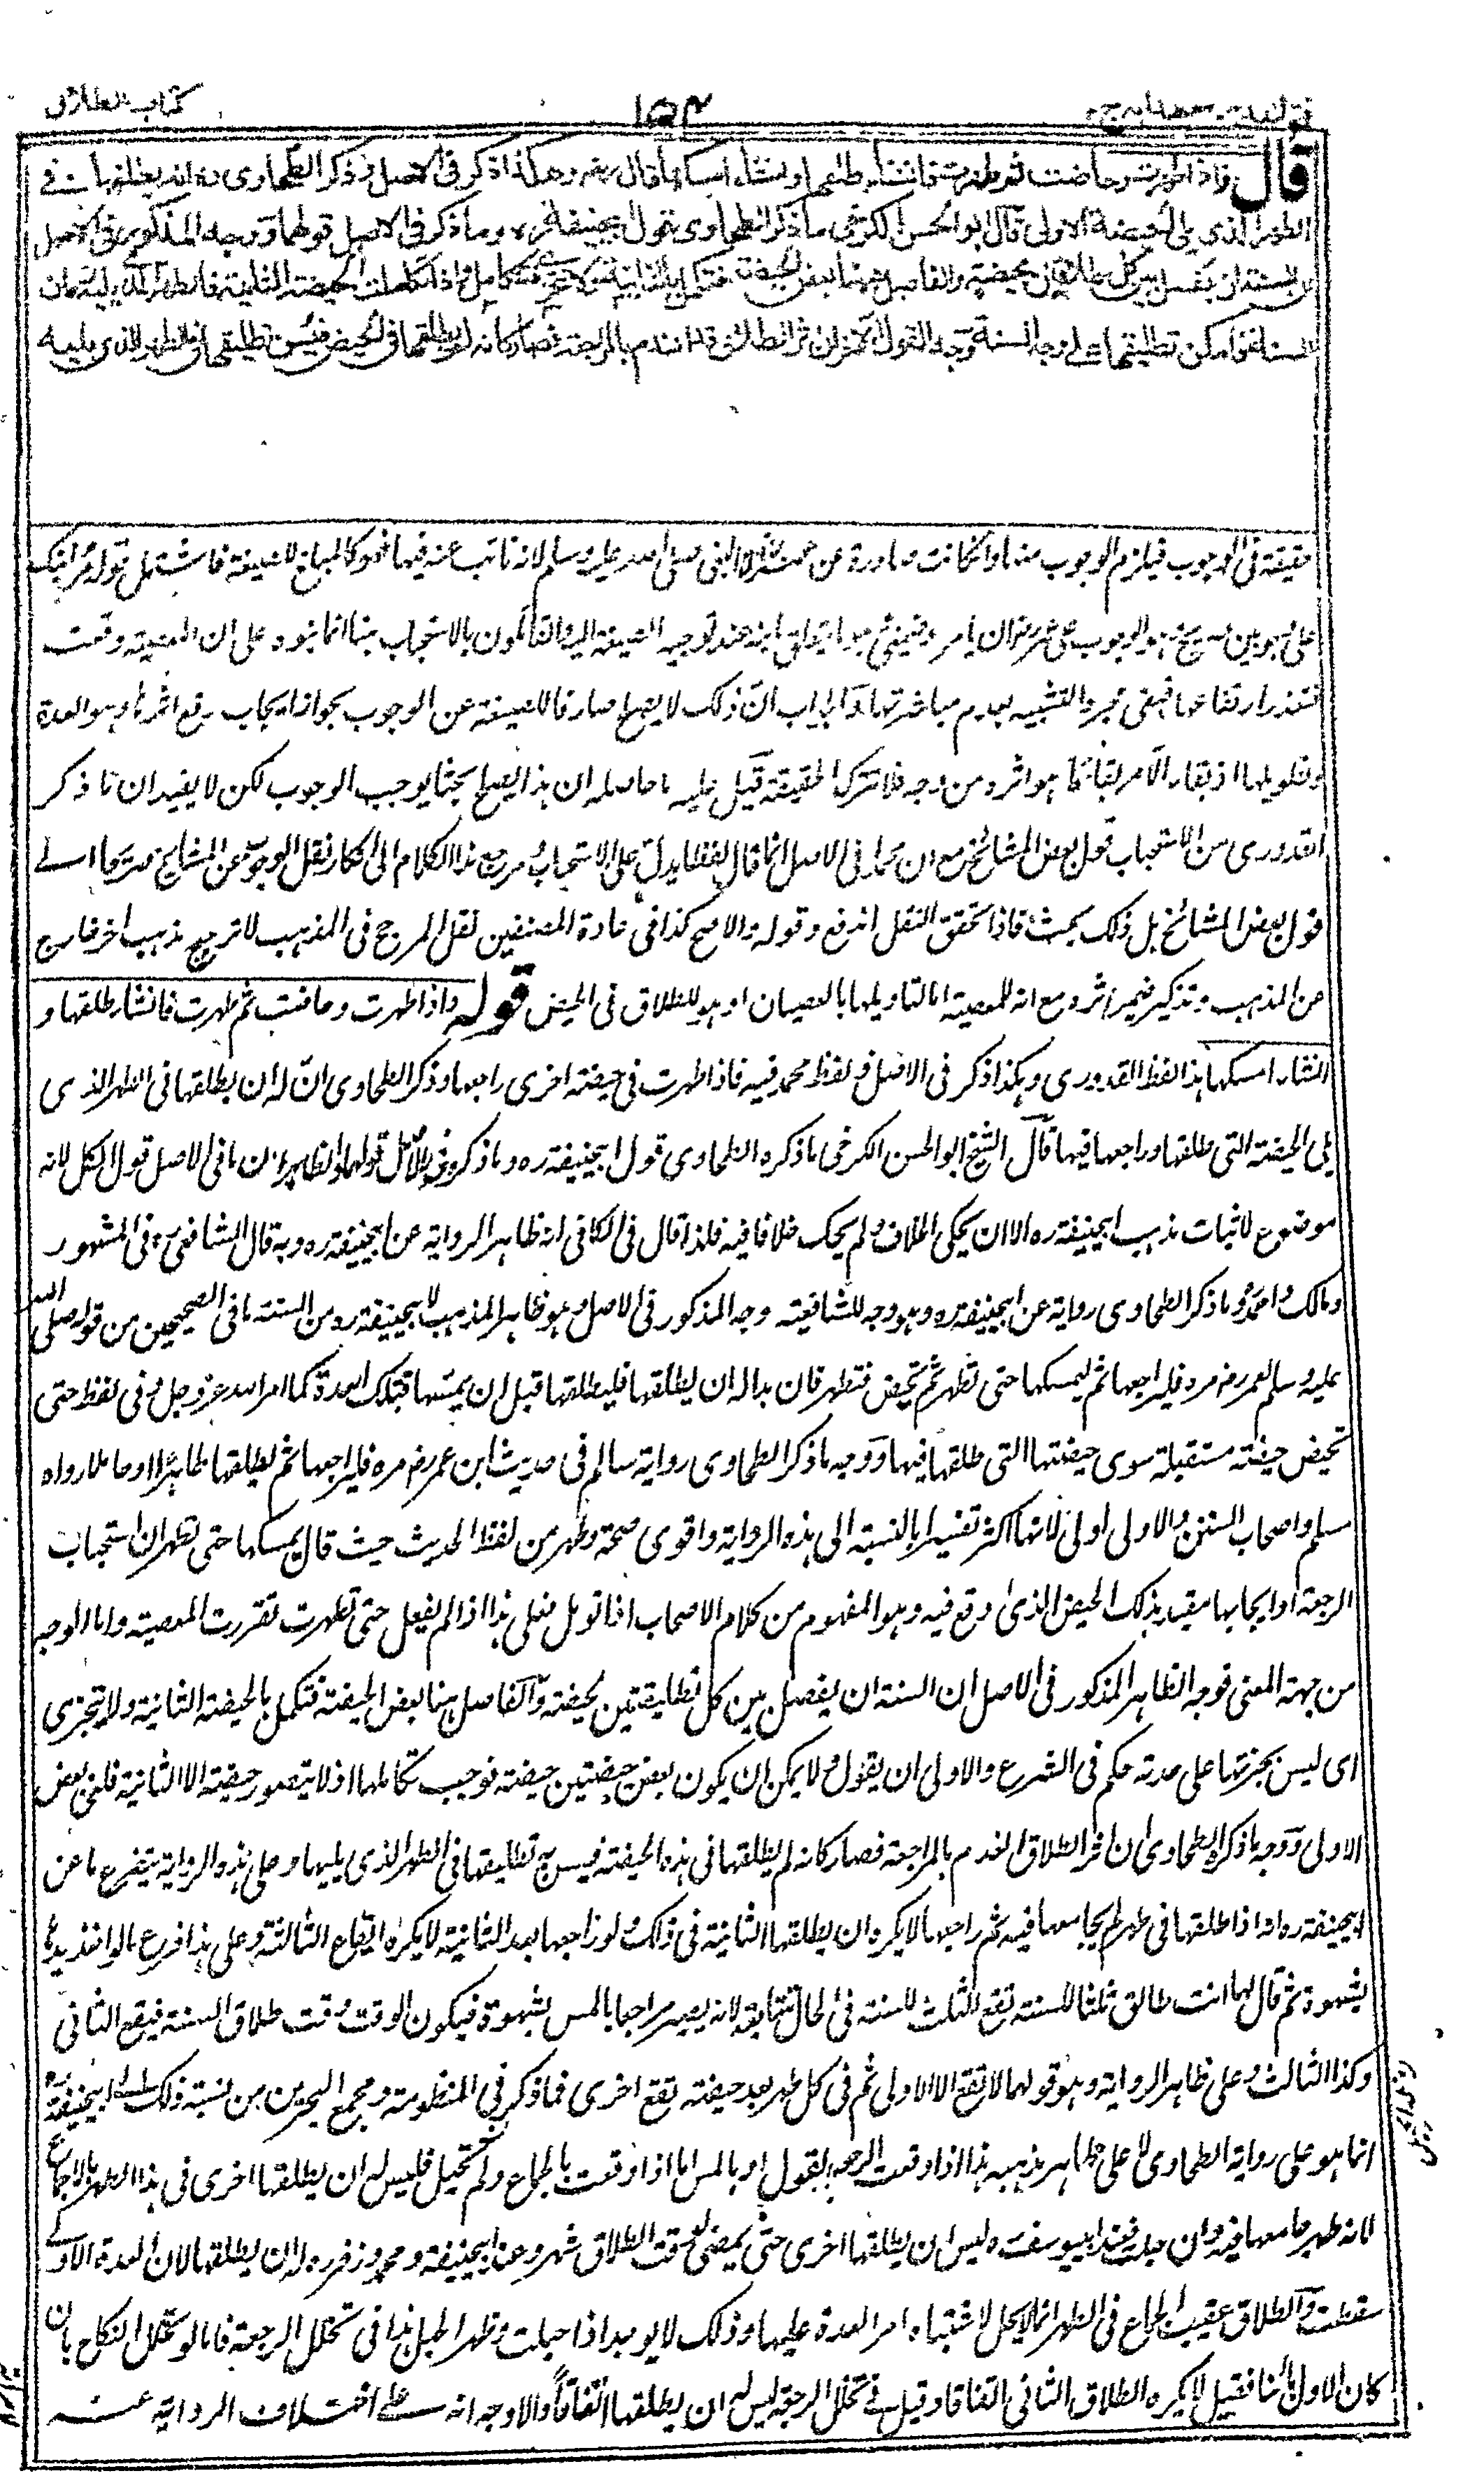 كتاب الطلاق
١٥٤
فتح القدير مع هدايه ج ٢
قال واذا طهرت وحاضت ثم طهرت فان شاء طلقها وان شاء امسكها قال رضه وهكذا ذكر في الاصل وذكر الطحاوى ره انه يطلقها في
الطهر الذي يلي الحيضة الاولى قال ابو الحسن الكرخي ما ذكر الطحاوى قول ابيحنيفة ره وما ذكر في الاصل قولهما ووجه المذكور في الاصل
ان السنة ان يفصل بين كل طلاقين بحيضة والفاصل ههنا بعض الحيضة فتكمل بالثانية ولا تتجزى فتتكامل واذا تكاملت الحيضة الثانية فالطهر الذي يليه زمان
السنة فامكن تطليقها على وجه السنة وجه القول الآخر ان اثر الطلاق قد انعدم بالمراجعة فصار كانه لم يطلقها في الحيض فيسن تطليقها في الطهر الذي يليه
حقيقة فى الوجوب فيلزم الوجوب منها وان كانت صادرة عن عمر النبى صلى الله عليه وسلم لانه نائب عنه فيها فهو كالمبلغ للصيغة فاشتمل قوله مر ابنك
على وجوبين صريح وهو الوجوب على عمر رض ان يامر وضمنى وهو ما يتعلق بابنه عند توجيه الصيغة اليه والقائلون بالاستحباب هنا انما بنوه على ان المعصية وقعت
فتعذر ارتفاعها فبقى مجرد التشبيه بعدم مباشرتها والجواب ان ذلك لا يصلح صارفا للصيغة عن الوجوب بجواز ايجاب رفع اثرها وهو العدة
وتطويلها اذ بقاء الامر بقاء ما هو اثره من وجه فلا تترك الحقيقة قيل عليه ما حاصله ان هذا يصلح بحثا يوجب الوجوب لكن لا يفيد ان ما ذكر
القدورى من الاستحباب قول بعض المشائخ مع ان محمدا فى الاصل انما قال لفظا يدل على الاستحباب مرجع هذا الكلام الى انكار نقل الوجوب عن المشايخ صريحا اسے
قول بعض المشائخ بل ذلك بحث فاذا تحقق النقل اندفع وقوله والاصح كذا فى عادة المصنفين لنقل المرجح فى المذهب لا ترجيح مذهب اخر خارج
عن المذهب وتذكير ضمير اثره مع انه للمعصية اما لتاويلها بالعصيان او هو للطلاق فى الحيض قوله واذا طهرت وحاضت ثم طهرت فان شاء طلقها و
ان شاء امسكها هذا لفظ القدورى وهكذا ذكر فى الاصل ولفظ محمد فيه فاذا طهرت فى حيضة اخرى راجعها وذكر الطحاوى ان له ان يطلقها فى الطهر الذى
يلى الحيضة التى طلقها وراجعها فيها قال الشيخ ابو الحسن الكرخى ما ذكره الطحاوى قول ابيحنيفة ره وما ذكره فى الاصل قولهما والظاهر ان ما فى الاصل قول الكل لانه
موضوع لاثبات مذهب ابيحنيفة ره الا ان يحكى الخلاف ولم يحك خلافا فيه فلذا قال فى الكافى انه ظاهر الرواية عن ابيحنيفة ره وبه قال الشافعى ره فى المشهور
ومالك واحمد وما ذكر الطحاوى رواية عن ابيحنيفة ره وهو وجه للشافعية وجه المذكور فى الاصل وهو ظاهر المذهب لابيحنيفة ره من السنة ما فى الصحيحين من قوله صلى الله
عليه وسلم لعمر رض مره فليراجعها ثم ليمسكها حتى تطهر ثم تحيض فتطهر فان بدا له ان يطلقها فليطلقها قبل ان يمسها فتلك العدة كما امر الله عز وجل وفى لفظ حتى
تحيض حيضة مستقبلة سوى حيضتها التى طلقها فيها ووجه ما ذكر الطحاوى رواية سالم فى حديث ابن عمر رض مره فليراجعها ثم ليطلقها طاهرا او حاملا رواه
مسلم واصحاب السنن والاولى اولى لانها اكثر تفسيرا بالنسبة الى هذه الرواية واقوى صحة وظهر من لفظ الحديث حيث قال يمسكها حتى تطهر ان استحباب
الرجعة او ايجابها مقيد بذلك الحيض الذى وقع فيه وهو المفهوم من كلام الاصحاب اذا تومل فعلى هذا اذا لم يفعل حتى طهرت تقررت المعصية واما الوجه
من جهة المعنى فوجه الظاهر المذكور فى الاصل ان السنة ان يفصل بين كل تطليقتين بحيضة والفاصل هنا بعض الحيضة فتكمل بالحيضة الثانية ولا تتجزى
اى ليس بجزئها على حدته حكم فى الشرع والاولى ان يقول ولا يمكن ان يكون بعض حيضتين حيضة فوجب تكاملها اذ لا يتصور حيضة الا الثانية فلغى بعض
الاولى ووجه ما ذكره الطحاوى ان اثر الطلاق انعدم بالمراجعة فصار كانه لم يطلقها فى هذه الحيضة فيسن تطليقها فى الطهر الذى يليها وعلى هذه الرواية يتفرع ما عن
ابيحنيفة ره انه اذا طلقها فى طهر لم يجامعها فيه ثم راجعها لا يكره ان يطلقها الثانية فى ذلك ولو راجعها بعد الثانية لا يكره ايقاع الثالثة وعلى هذا فرع ما لو اخذ يدها
بشهوة ثم قال لها انت طالق ثلثا للسنة تقع الثلث للسنة فى الحال متتابعة لانه يصير مراجعا بالمس بشهوة فيكون الوقت وقت طلاق السنة فيقع الثانى
وكذا الثالث وعلى ظاهر الرواية وهو قولهما لا تقع الا الاولى ثم فى كل طهر بعد حيضة تقع اخرى فما ذكر فى المنظومة ومجمع البحرين من نسبة ذلك الى ابيحنيفة ره
انما هو على رواية الطحاوى لا على ظاهر مذهبه هذا اذا وقعت الرجعة بالقول او بالمس اما اذا وقعت بالجماع ولم تحبل فليس له ان يطلقها اخرى فى هذا الطهر بالاجماع
لانه طهر جامعها فيه وان حبلت فعند ابى يوسف ره ليس له ان يطلقها اخرى حتى يمضى لوقت الطلاق شهر وعن ابيحنيفة ومحمد وزفر ره له ان يطلقها لان العدة الاولے
سقطت والطلاق عقيب الجماع فى الطهر انما لا يحل لاشتباه امر العدة عليها وذلك لا يوجد اذا حبلت وظهر الحبل هذا فى تخلل الرجعة فاما لو تخلل النكاح بان
كان الاول بائنا فقيل لا يكره الطلاق الثانى اتفاقا وقيل فى تخلل الرجعة ليس له ان يطلقها اتفاقا والاوجه انه على اختلاف الرواية عنه